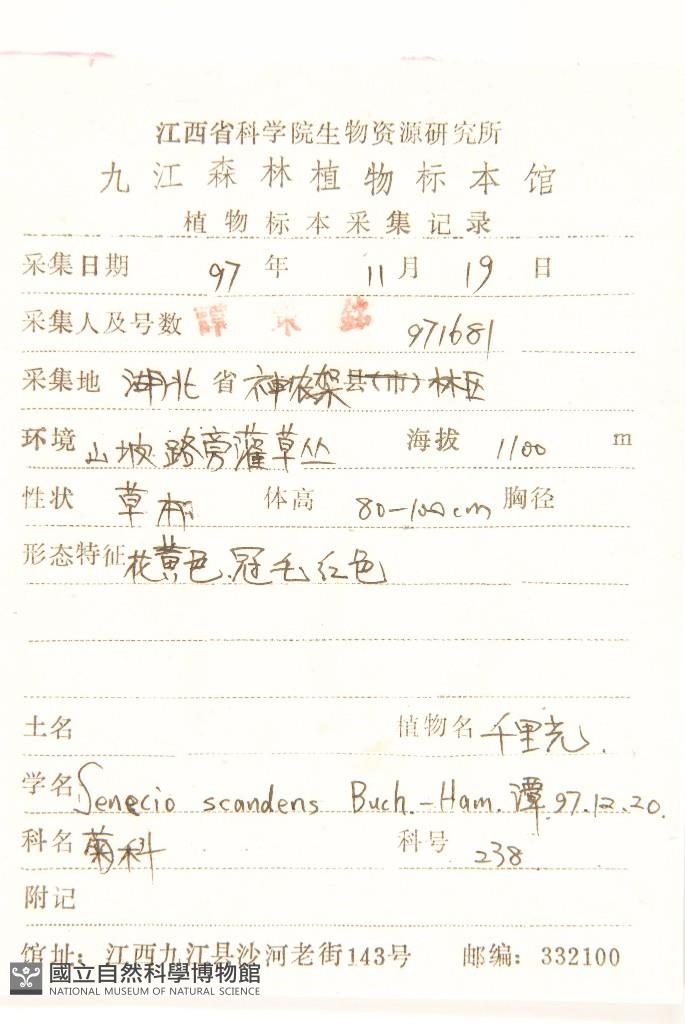 江西省科学院生物资源研究所
九江森林植物标本馆
植物标本采集记录
采集日期 97 年 11 月 19 日
采集人及号数 谭策铭 971681
采集地 湖北 省 神农架县(市)林区
环境 山坡路旁灌草丛 海拔 1100 m
性状 草本 体高 80-100cm 胸径
形态特征 花黄色.冠毛红色
土名 植物名 千里光.
学名 Senecio scandens Buch.-Ham. 潭.97.12.20.
科名 菊科 科号 238
附记
馆址: 江西九江县沙河老街143号 邮编: 332100
國立自然科學博物館
NATIONAL MUSEUM OF NATURAL SCIENCE